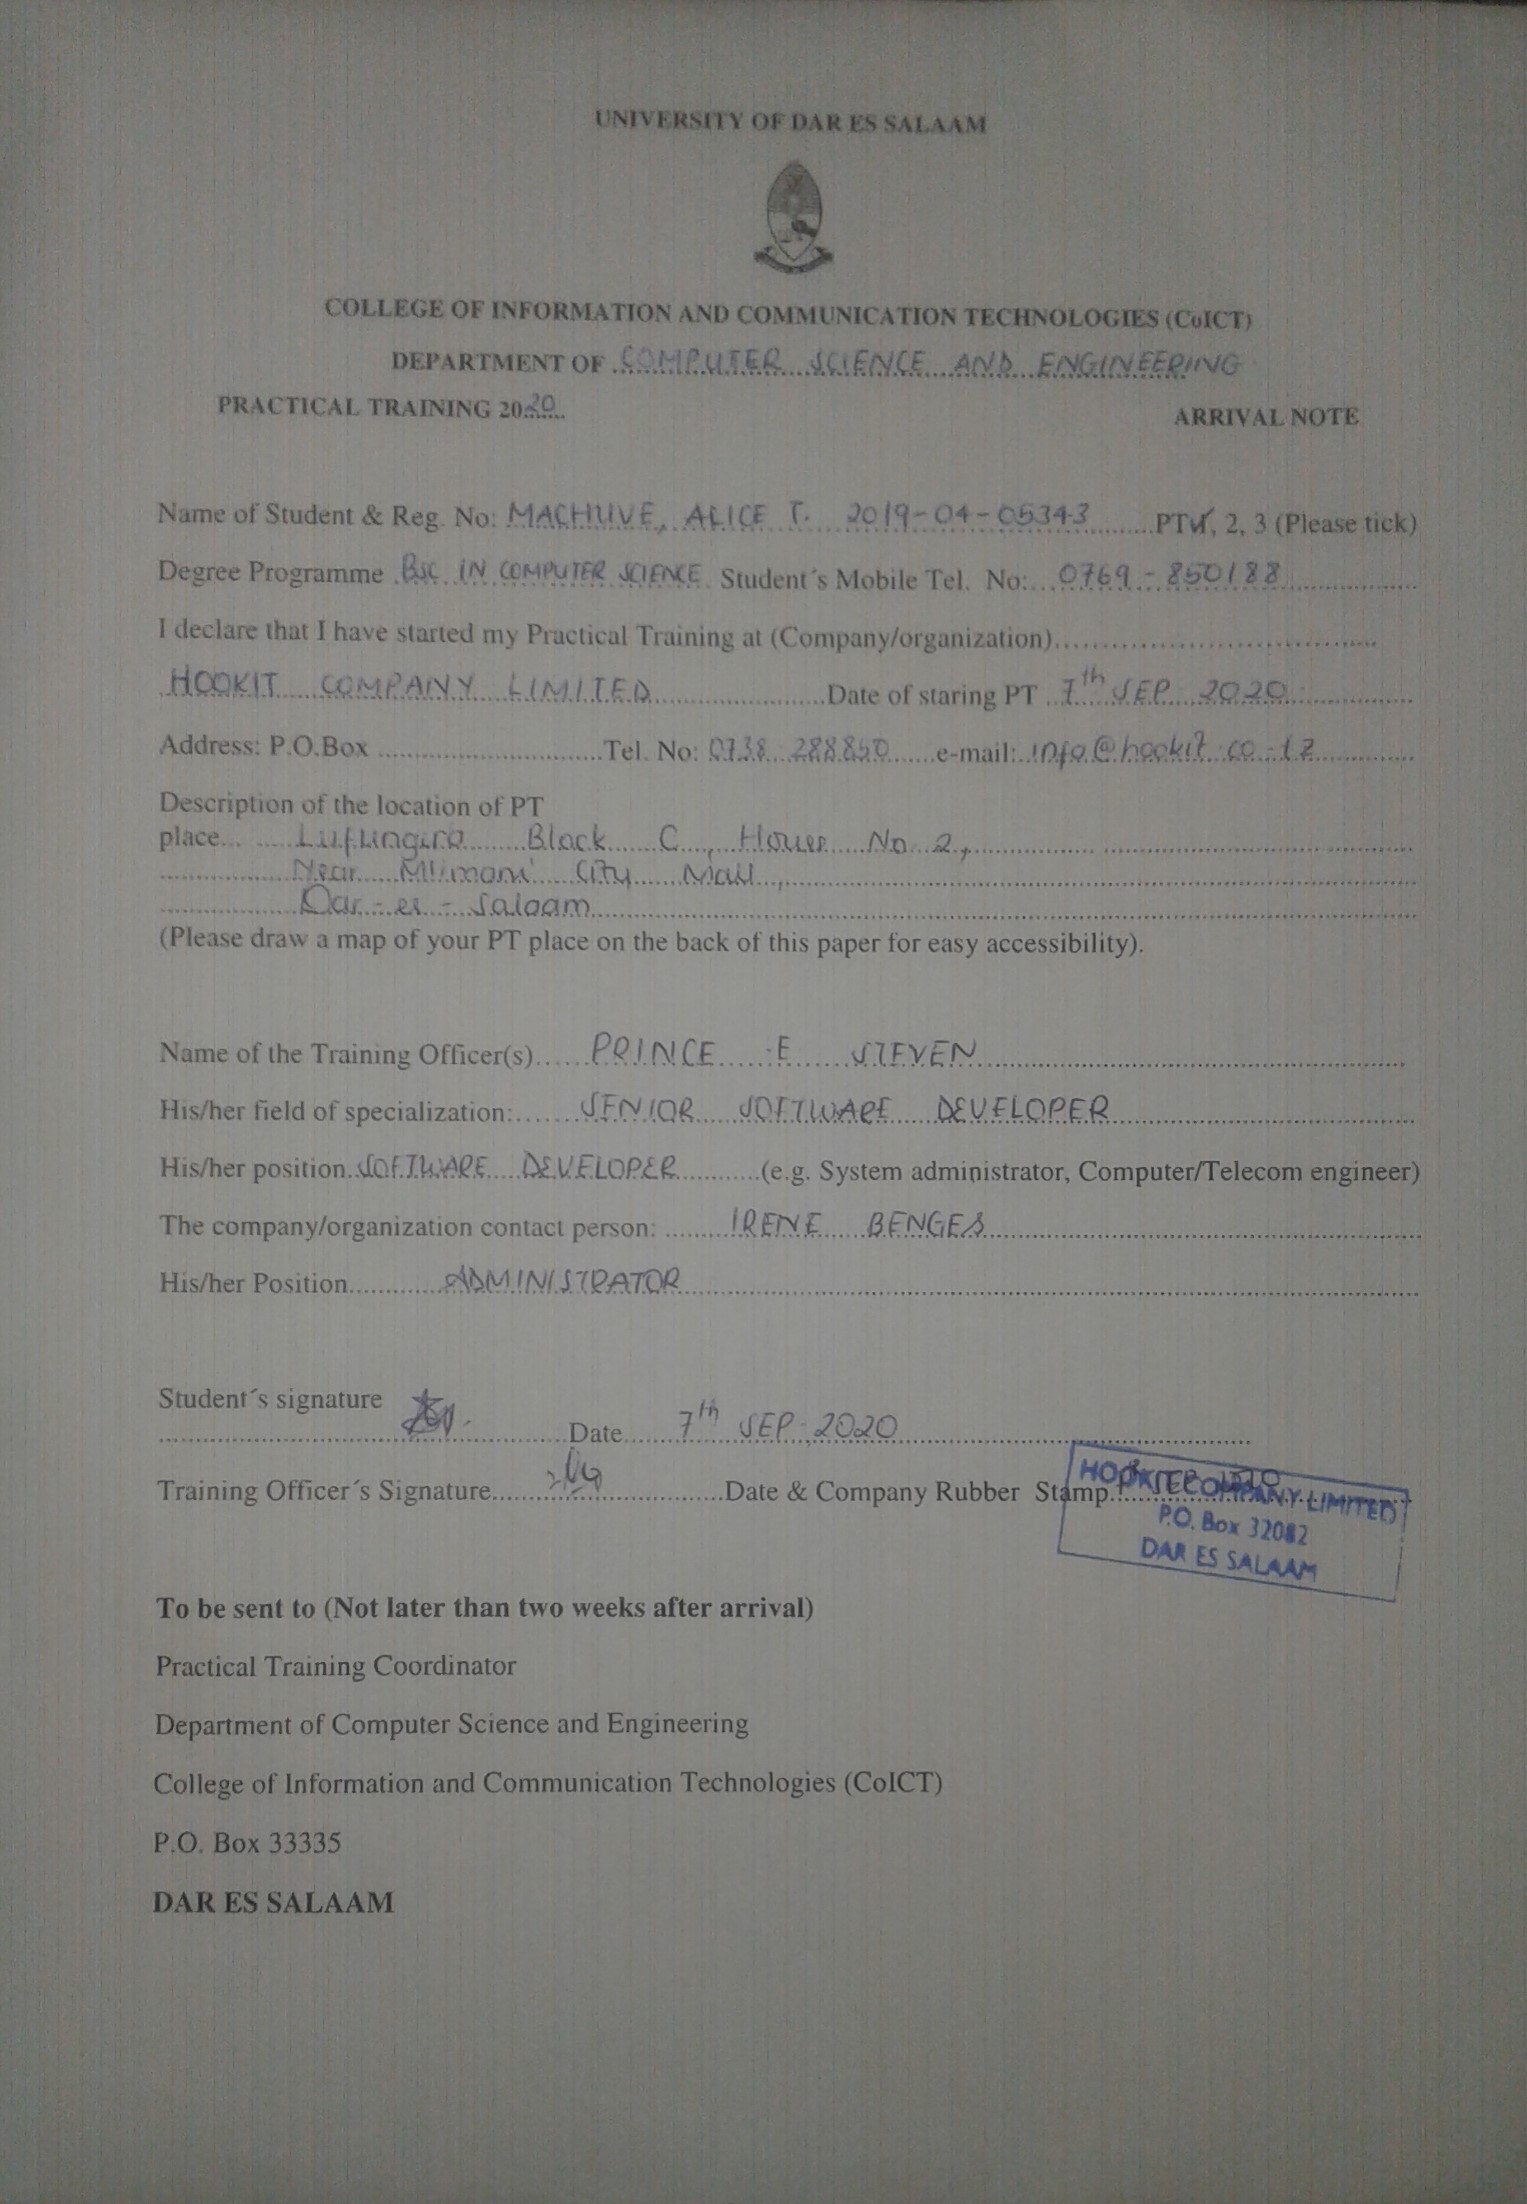 UNIVERSITY OF DAR ES SALAAM
COLLEGE OF INFORMATION AND COMMUNICATION TECHNOLOGIES (CoICT)
DEPARTMENT OF COMPUTER SCIENCE AND ENGINEERING
PRACTICAL TRAINING 2020 ARRIVAL NOTE
Name of Student & Reg. No: MACHUVE, ALICE T. 2019-04-05343 PT 1, 2, 3 (Please tick)
Degree Programme BSC IN COMPUTER SCIENCE Student´s Mobile Tel. No: 0769-850188
I declare that I have started my Practical Training at (Company/organization)
HOOKIT COMPANY LIMITED Date of staring PT 7th SEP 2020
Address: P.O.Box Tel. No: 0738 288850 e-mail: info@hookit.co.tz
Description of the location of PT
place Lufungira Block C, House No 2,
Near Mlimani City Mall,
Dar-es-Salaam
(Please draw a map of your PT place on the back of this paper for easy accessibility).
Name of the Training Officer(s) PRINCE E STEVEN
His/her field of specialization: SENIOR SOFTWARE DEVELOPER
His/her position SOFTWARE DEVELOPER (e.g. System administrator, Computer/Telecom engineer)
The company/organization contact person: IRENE BENGES
His/her Position ADMINISTRATOR
Student´s signature
Date 7th SEP 2020
Training Officer´s Signature Date & Company Rubber Stamp
HOOKIT COMPANY LIMITED
P.O. Box 32082
DAR ES SALAAM
To be sent to (Not later than two weeks after arrival)
Practical Training Coordinator
Department of Computer Science and Engineering
College of Information and Communication Technologies (CoICT)
P.O. Box 33335
DAR ES SALAAM